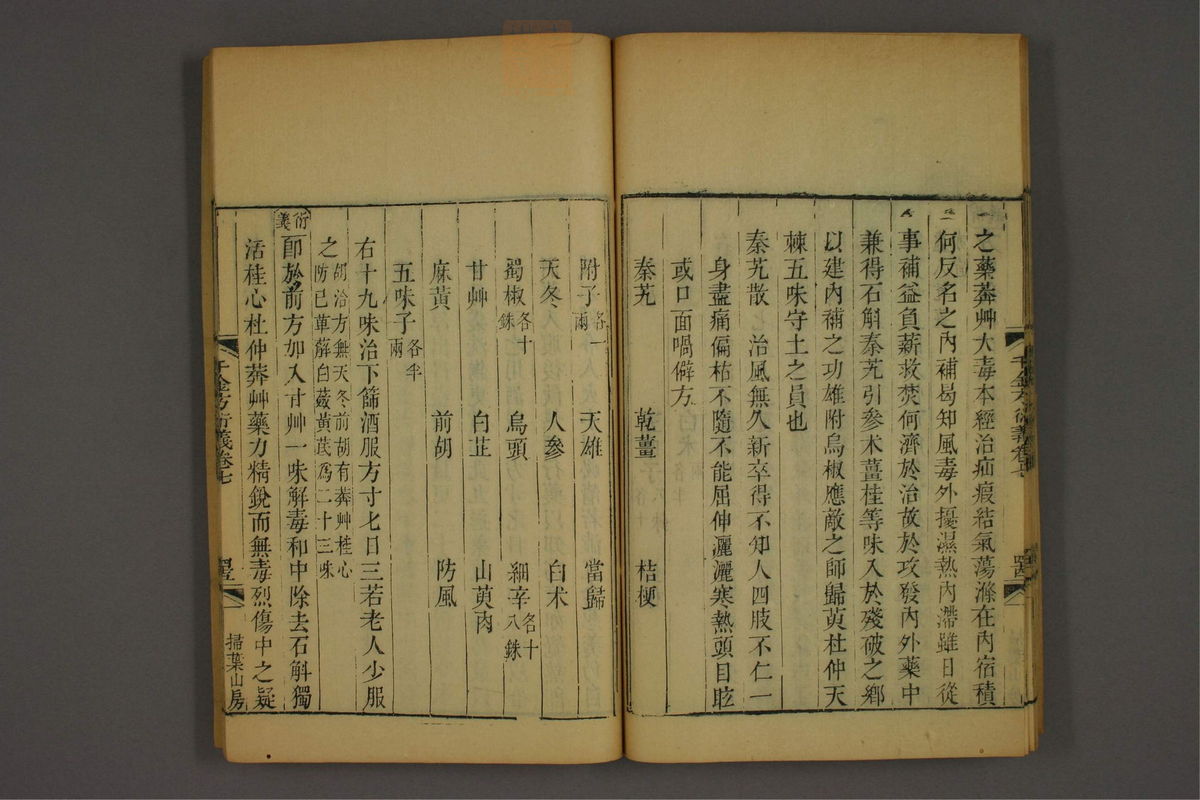 之藥莽艸大毒本經治疝瘕結氣蕩滌在內宿積
何反名之內補曷知風毒外擾濕熱內滯雖日從
事補益負薪救焚何濟於治故於攻發內外藥中
兼得石斛秦艽引參朮薑桂等味入於殘破之鄉
以建內補之功雄附烏椒應敵之師歸萸杜仲天
棘五味守土之員也
秦艽散七 治風無久新卒得不知人四肢不仁一
身盡痛偏枯不隨不能屈伸灑灑寒熱頭目眩
或口面喎僻方
秦艽 乾薑 桔梗
附子各一兩 天雄 當歸
天冬 人參 白朮
蜀椒各十銖 烏頭 細辛各十八銖
甘艸 白芷 山萸肉
麻黃 前胡 防風
五味子各半兩
右十九味治下篩酒服方寸匕日三若老人少服
之胡洽方無天冬前胡有莽艸桂心
防已萆薢白蘞黃茋為二十三味
衍義 卽於前方加入甘艸一味解毒和中除去石斛獨
活桂心杜仲莽艸藥力精銳而無毒烈傷中之疑
千金方衍義卷七
掃葉山房